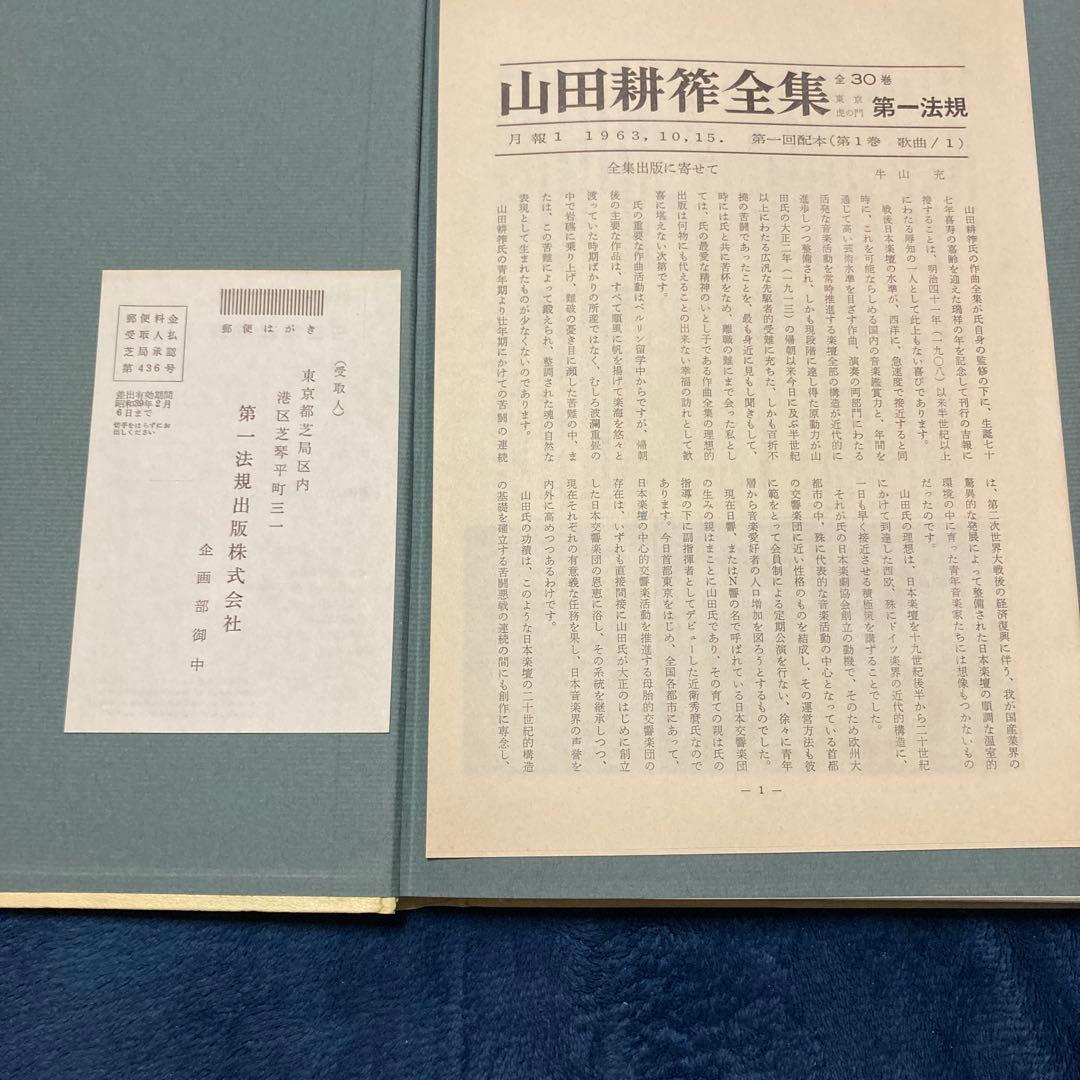 郵便はがき
郵便料金
受取人払
芝局承認
第436号
差出有効期間
昭和39年2月
6日まで
切手をはらずにお
出しください
(受取人)
東京都芝局区内
港区芝琴平町三一
第一法規出版株式会社
企画部御中
山田耕筰全集
全30巻
東京
虎の門
第一法規
月報1 1963,10,15. 第一回配本(第1巻 歌曲/1)
全集出版に寄せて
牛山 充
山田耕筰氏の作曲全集が氏自身の監修の下に、生誕七十
七年喜寿の高齢を迎えた瑞祥の年を記念して刊行の吉報に
接することは、明治四十一年(一九〇八)以来半世紀以上
にわたる辱知の一人として此上もない喜びであります。
戦後日本楽壇の水準が、西洋に、急速度で接近すると同
時に、これを可能ならしめる国内の音楽鑑賞力と、年間を
通じて高い芸術水準を目ざす作曲、演奏の両部門にわたる
活発な音楽活動を常時推進する楽壇全部の構造が近代的に
進歩しつつ整備され、しかも現段階に達し得た原動力が山
田氏の大正二年(一九一三)の帰朝以来今日に及ぶ半世紀
以上にわたる広汎な先駆者的受難に充ちた、しかも百折不
撓の苦闘であったことを、最も身近に見もし聞きもして、
時には氏と共に苦杯をなめ、離職の難にまで会った私とし
ては、氏の最愛な精神のいとし子である作曲全集の理想的
出版は何物にも代えることの出来ない幸福の訪れとして歓
喜に堪えない次第です。
氏の重要な作曲活動はベルリン留学中からですが、帰朝
後の主要な作品は、すべて順風に帆を揚げて楽海を悠々と
渡っていた時期ばかりの所産ではなく、むしろ波瀾重畳の
中で岩礁に乗り上げ、難破の憂き目に瀕した苦難の中、ま
たは、この苦難によって鍛えられ、整調された魂の自然な
表現として生まれたものが少なくないのであります。
山田耕筰氏の青年期より壮年期にかけての苦闘の連続
は、第二次世界大戦後の経済復興に伴う、我が国産業界の
驚異的な発展によって整備された日本楽壇の順調な温室的
環境の中に育った青年音楽家たちには想像もつかないもの
だったのです。
山田氏の理想は、日本楽壇を十九世紀後半から二十世紀
にかけて到達した西欧、殊にドイツ楽界の近代的構造に、
一日も早く接近させる積極策を講ずることでした。
それが氏の日本楽劇協会創立の動機で、そのため欧州大
都市の中、殊に代表的な音楽活動の中心となっている首都
の交響楽団に近い性格のものを結成し、その運営方法も彼
に範をとって会員制による定期公演を行ない、徐々に青年
層から音楽愛好者の人口増加を図ろうとするものでした。
現在日響、またはN響の名で呼ばれている日本交響楽団
の生みの親はまことに山田氏であり、その育ての親は氏の
指導の下に副指揮者としてデビューした近衛秀麿氏なので
あります。今日首都東京をはじめ、全国各都市にあって、
日本楽壇の中心的交響楽活動を推進する母胎的交響楽団の
存在は、いずれも直接間接に山田氏が大正のはじめに創立
した日本交響楽団の恩恵に浴し、その系統を継承しつつ、
現在それぞれの有意義な任務を果し、日本音楽界の声誉を
内外に高めつつあるわけです。
山田氏の功績は、このような日本楽壇の二十世紀的構造
の基礎を確立する苦闘悪戦の連続の間にも創作に専念し、
— 1 —